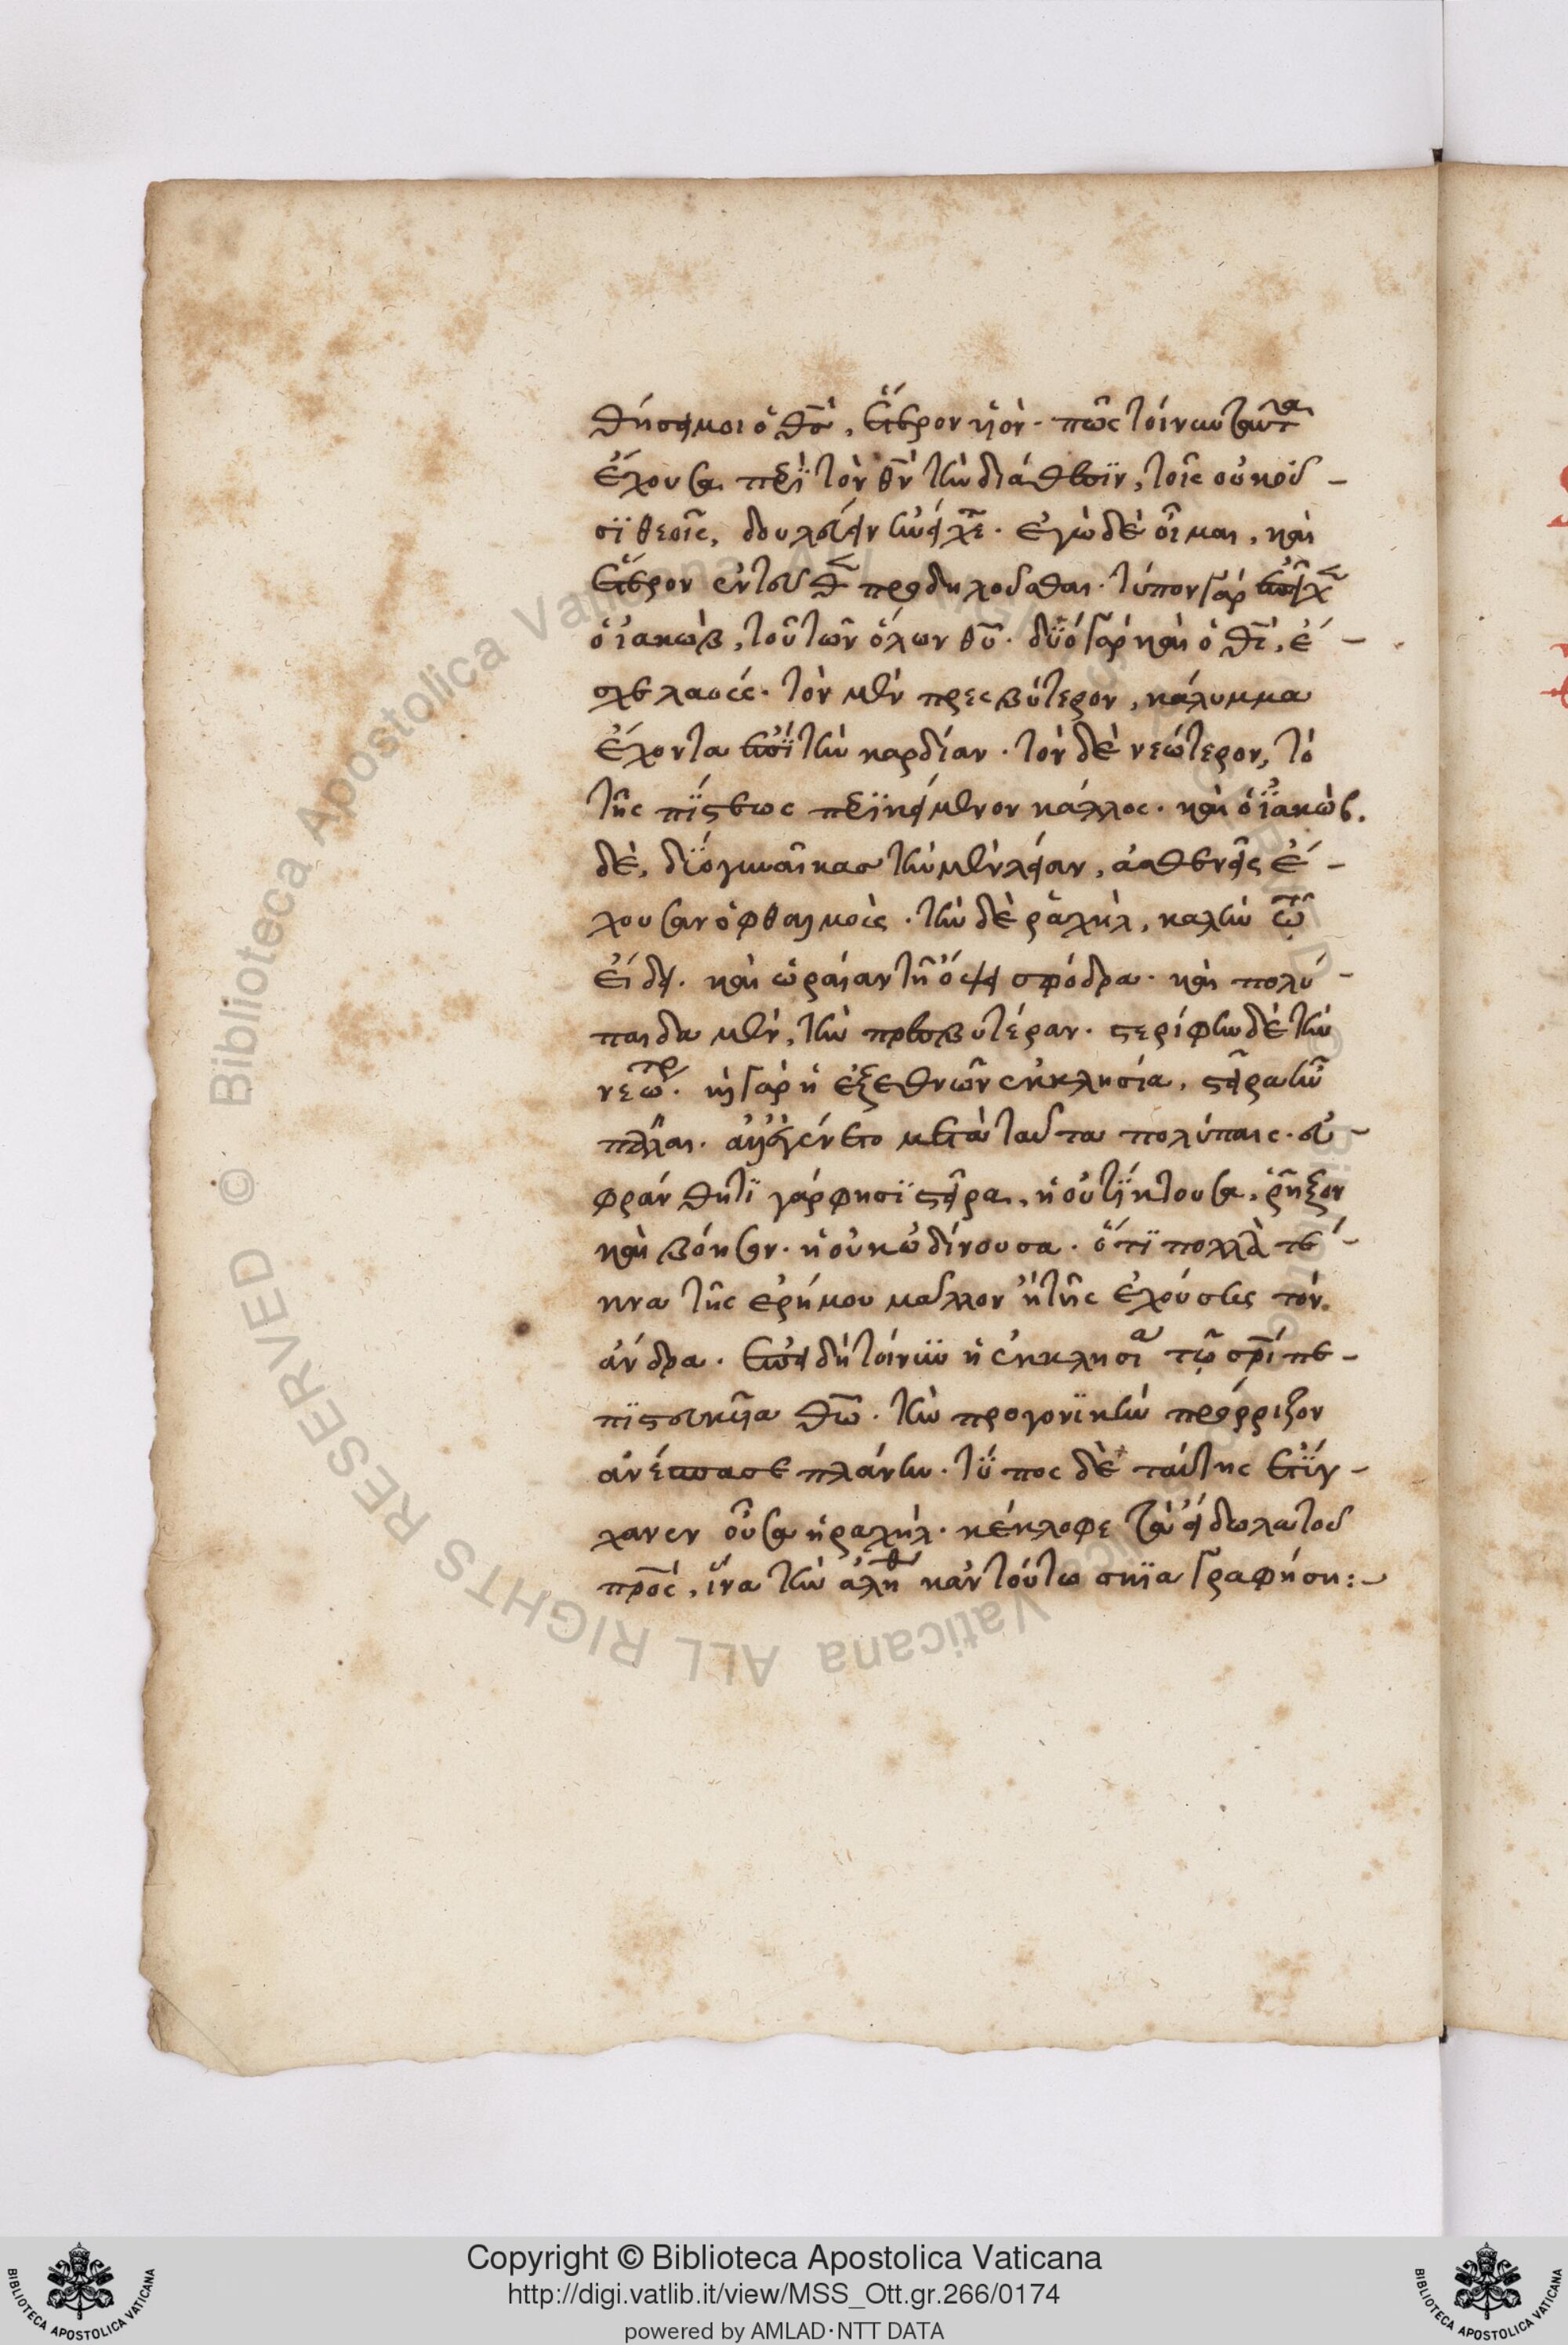 θήσει μοι ὁ θς̄, ἕτερον ϋἱόν. πῶς τοίνυν ταύτα
ἔχουσα περὶ τὸν θν̄ τὴν διάθεσϊν, τοῖς οὐκ οὖ-
σϊ θεοῖς, δουλεύειν ἠνείχε. ἐγὼ δὲ οἶμαι, καὶ
ἕτερον ἐντεῦθ προδηλοῦσθαι. τύπον γὰρ ἐπεῖχ
ὁ ἰακὼβ, τοῦ τῶν ὅλων θῡ. δύο γὰρ καὶ ὁ θς̄, ἔ-
σχε λαούς. τὸν μὲν πρεσβύτερον, κάλυμμα
ἔχοντα ἐπὶ τὴν καρδίαν. τὸν δὲ νεώτερον, τὸ
τῆς πίστεως περϊκείμενον κάλλος. καὶ ὁ ϊακὼβ
δὲ, δύο γυναῖκας τὴν μὲν λείαν, ἀσθενεῖς ἔ-
χουσαν ὀφθαλμοὺς. τὴν δὲ ῥαχὴλ, καλὴν τῶ
εἴδει. καὶ ὡραίαν τῆ ὄψει σφόδρα. καὶ πολύ-
παιδα μὲν, τὴν πρεσβυτέραν. στερίφην δὲ τὴν
νεωτρ. καὶ γὰρ ἡ ἐξ ἐθνῶν ἐκκλησία, στεῖρα ἦν
πάλαι. ἀλλ' ἐγένετο μετὰ ταῦτα πολύπαις. εὐ-
φράνθητϊ γάρ φησϊ στεῖρα, ἡ οὐ τίκτουσα, ῥῆξον
καὶ βόησον. ἡ οὐκ ὠδίνουσα. ὅτϊ πολλὰ τέ-
κνα τῆς ἐρήμου μαλλον ἢ τῆς ἐχούσης τὸν
ἄνδρα. ἐπεὶ δὴ τοίνυν ἡ ἐκκλησία τῶ σρ̄ι πε-
πϊστευκυῖα θῶ. τὴν προγονϊκὴν πρόρριζον
ἀνέσπασε πλάνην. τύπος δὲ ταύτης ἐτύγ-
χανεν οὖσα ἡ ραχὴλ. κέκλοφε τὰ εἴδωλα τοῦ
πρ̄ος, ἵνα τὴν ἀλήθ κἀν τούτω σκϊαγραφήση:-
Copyright © Biblioteca Apostolica Vaticana
http://digi.vatlib.it/view/MSS_Ott.gr.266/0174
powered by AMLAD·NTT DATA